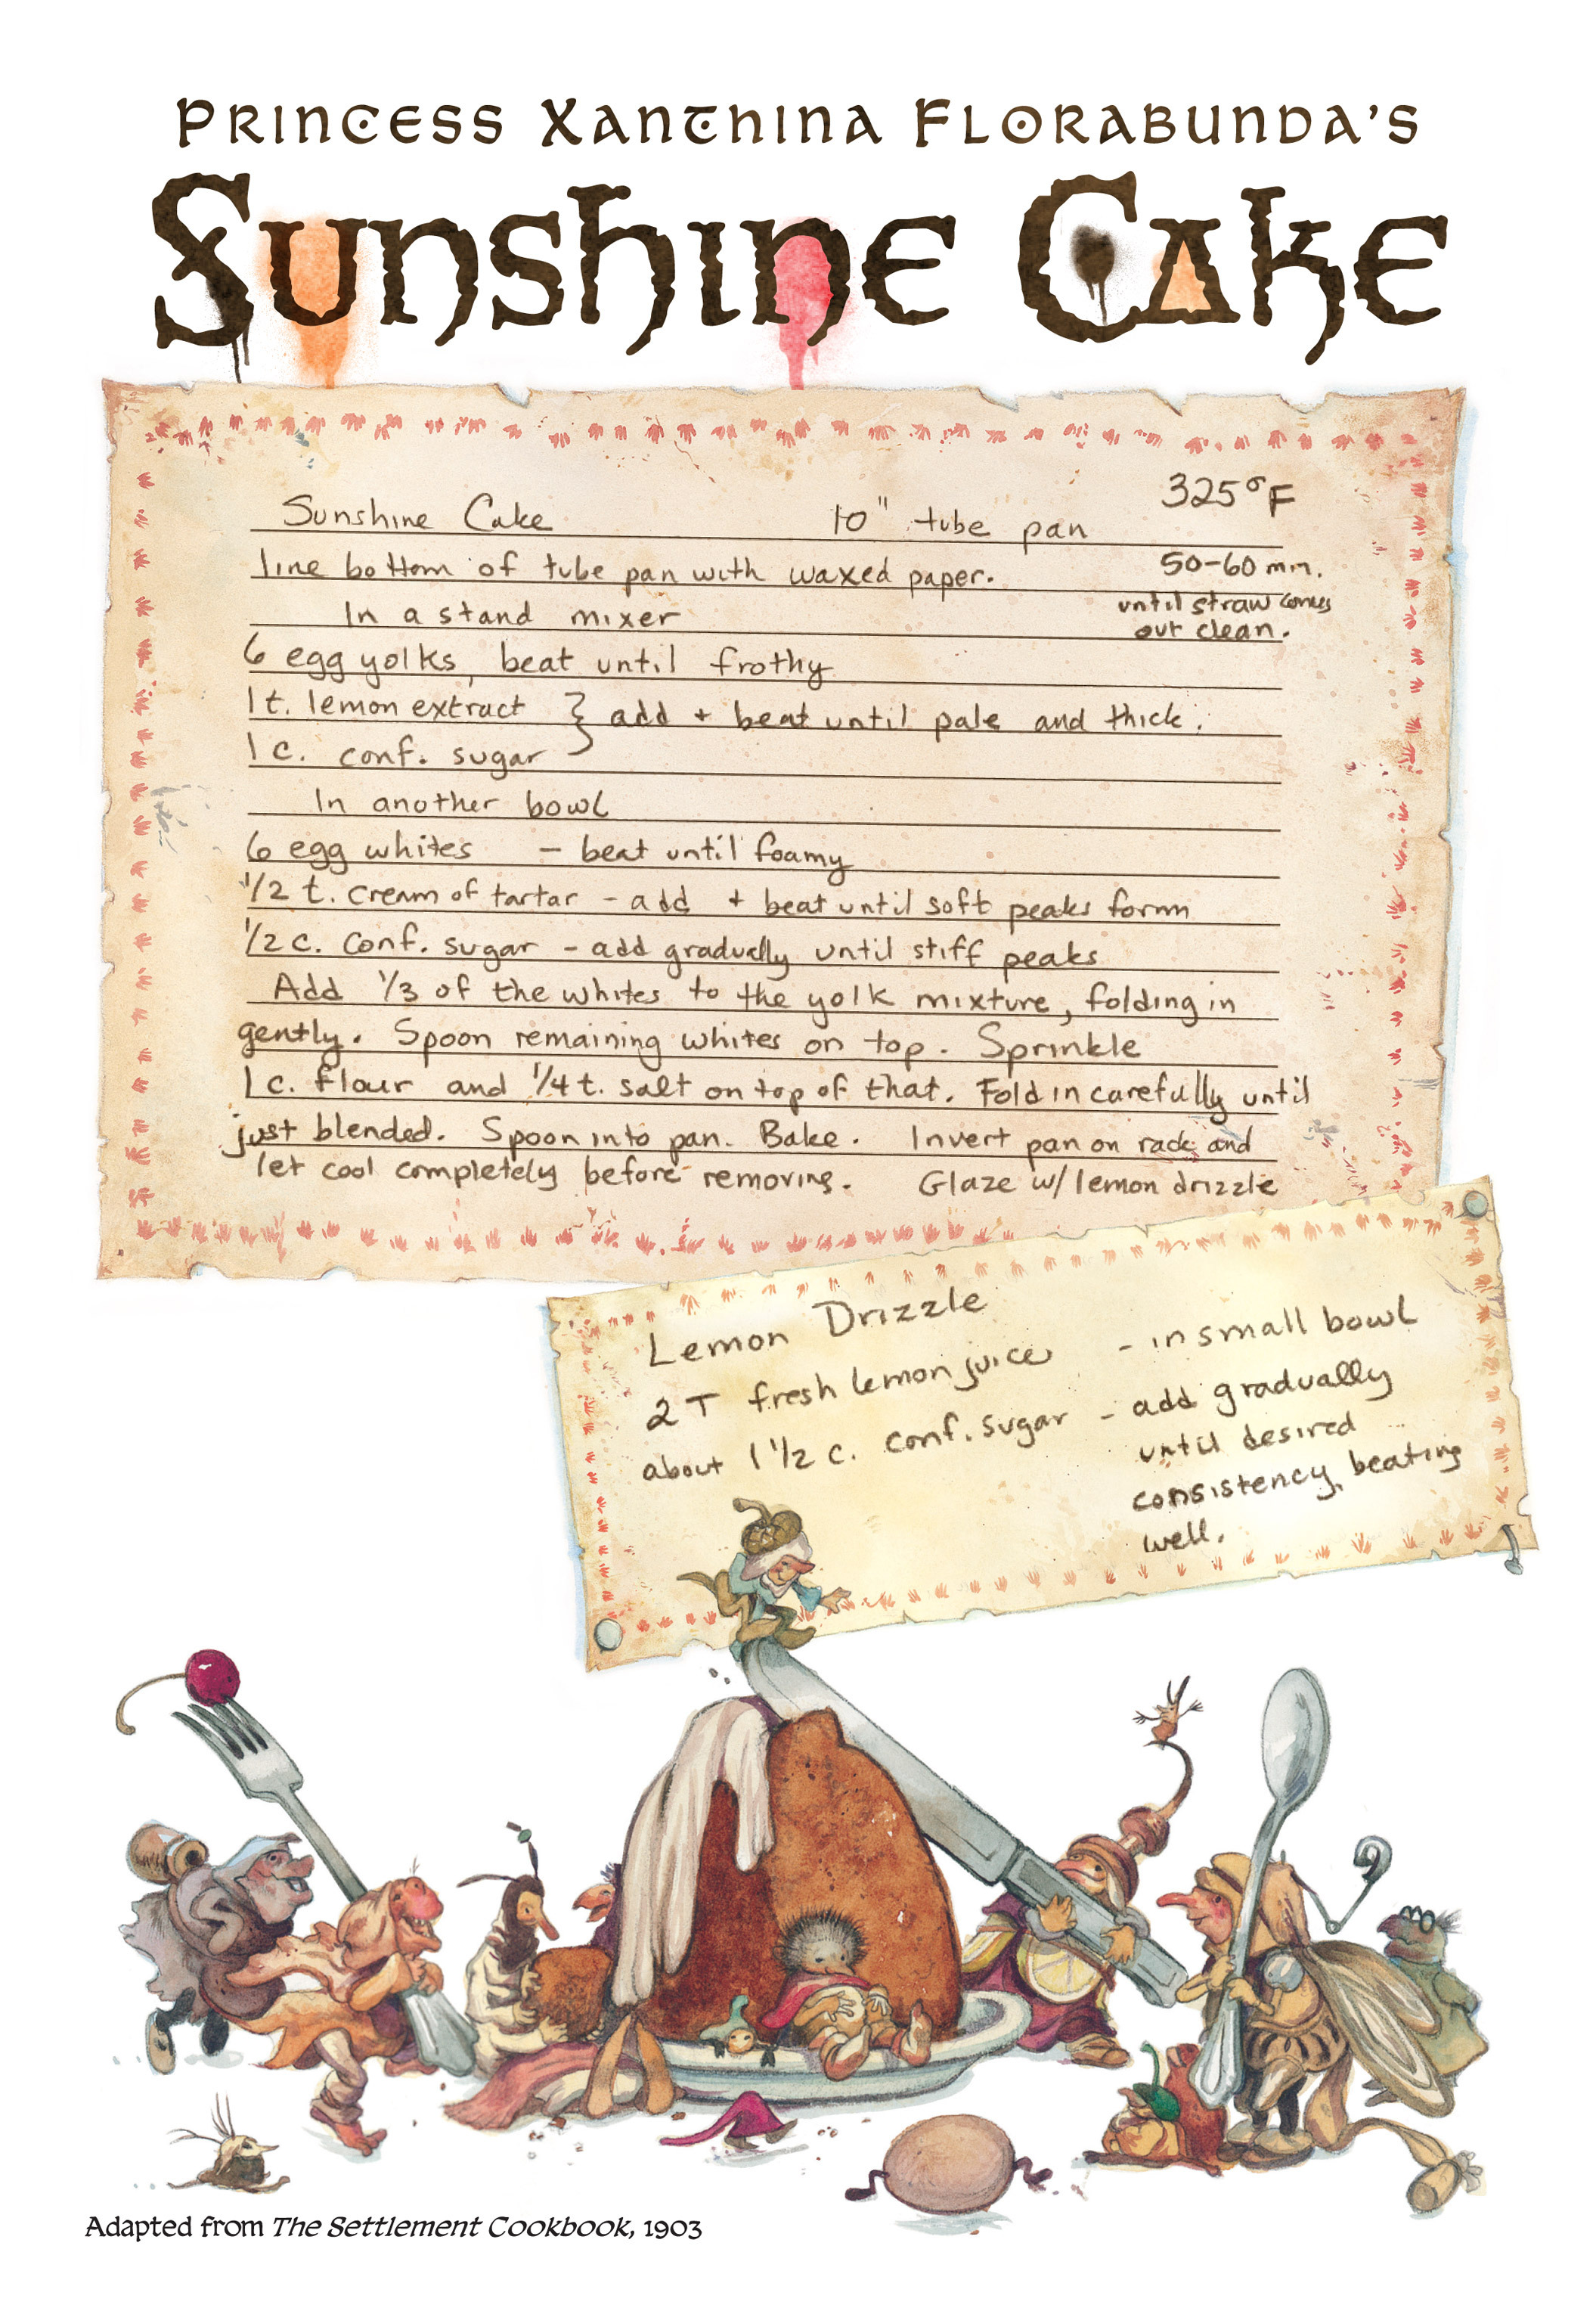 Princess Xanthina Florabunda's
Sunshine Cake
325°F
Sunshine Cake 10" tube pan
line bottom of tube pan with waxed paper. 50-60 min.
In a stand mixer until straw comes
out clean.
6 egg yolks, beat until frothy
1 t. lemon extract } add + beat until pale and thick.
1 c. conf. sugar
In another bowl
6 egg whites - beat until foamy
1/2 t. cream of tartar - add + beat until soft peaks form
1/2 c. conf. sugar - add gradually until stiff peaks
Add 1/3 of the whites to the yolk mixture, folding in
gently. Spoon remaining whites on top. Sprinkle
1 c. flour and 1/4 t. salt on top of that. Fold in carefully until
just blended. Spoon into pan. Bake. Invert pan on rack and
let cool completely before removing. Glaze w/ lemon drizzle
Lemon Drizzle
2 T fresh lemon juice - in small bowl
about 1 1/2 c. conf. sugar - add gradually
until desired
consistency, beating
well.
Adapted from The Settlement Cookbook, 1903